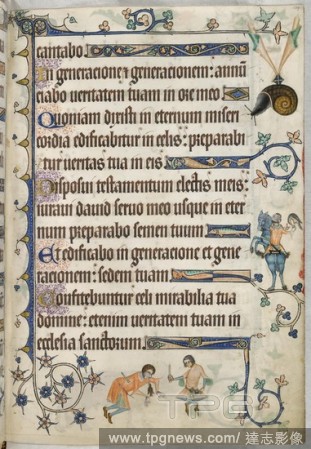 cantabo
In generacione ⁊ generacionem : annun
ciabo veritatem tuam in ore meo
Quoniam dixisti in eternum miseri
cordia edificabitur in celis : preparabi
tur veritas tua in eis
Disposui testamentum electis meis :
iuraui dauid seruo meo usque in eter
num preparabo semen tuum
Et edificabo in generacione et gene
racionem : sedem tuam
Confitebuntur celi mirabilia tua
domine : etenim veritatem tuam in
ecclesia sanctorum
TPG
www.tpgnews.com/ 達志影像